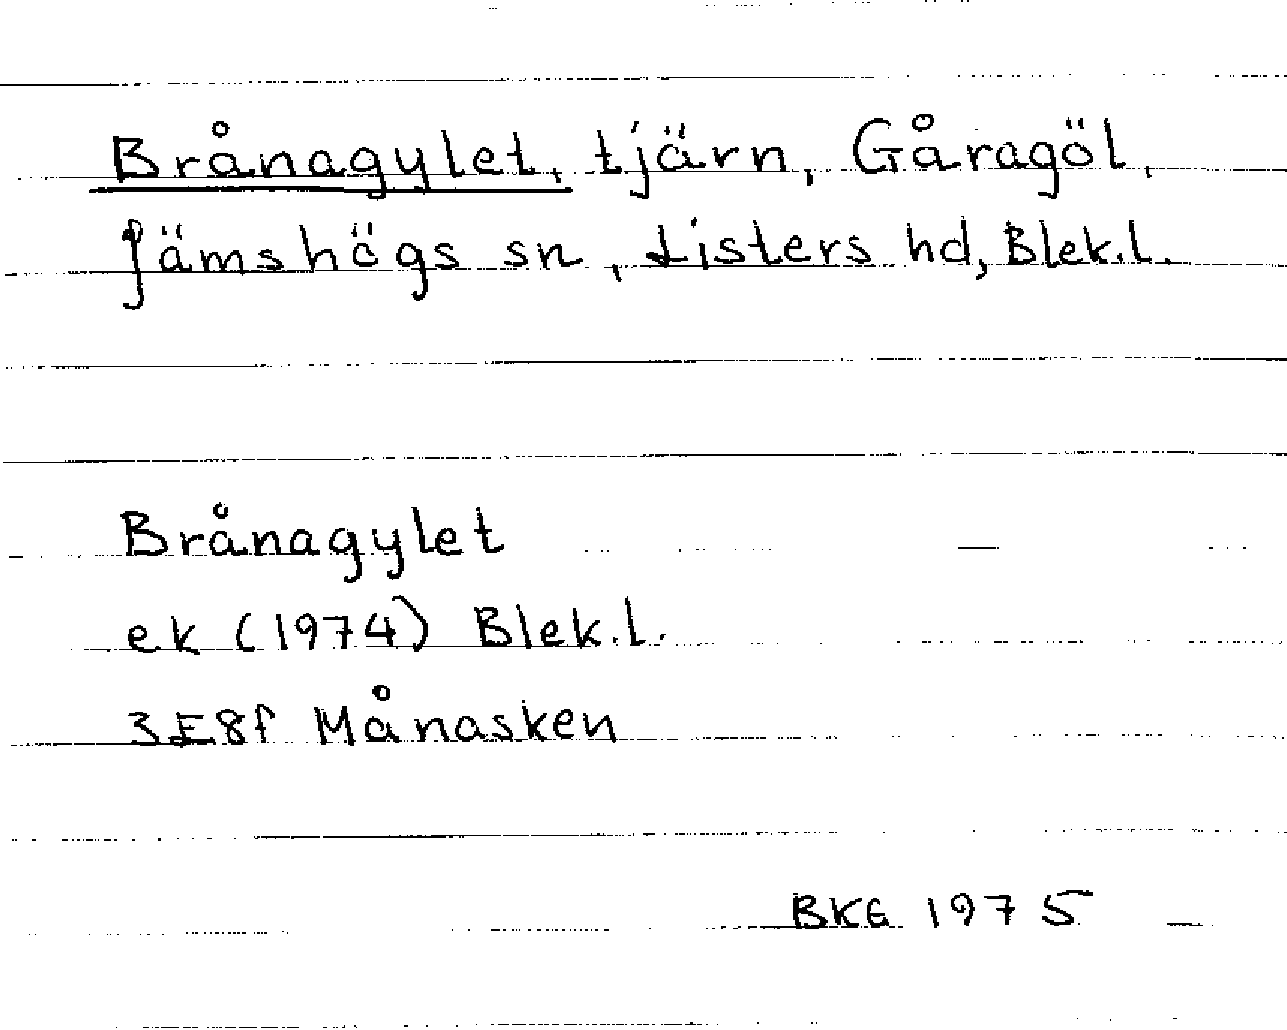 Brånagylet, tjärn, Gåragöl,
Jämshögs sn, Listers hd, Blek.l.
Brånagylet
ek (1974) Blek.l.
3E8f Månasken
BKG 1975